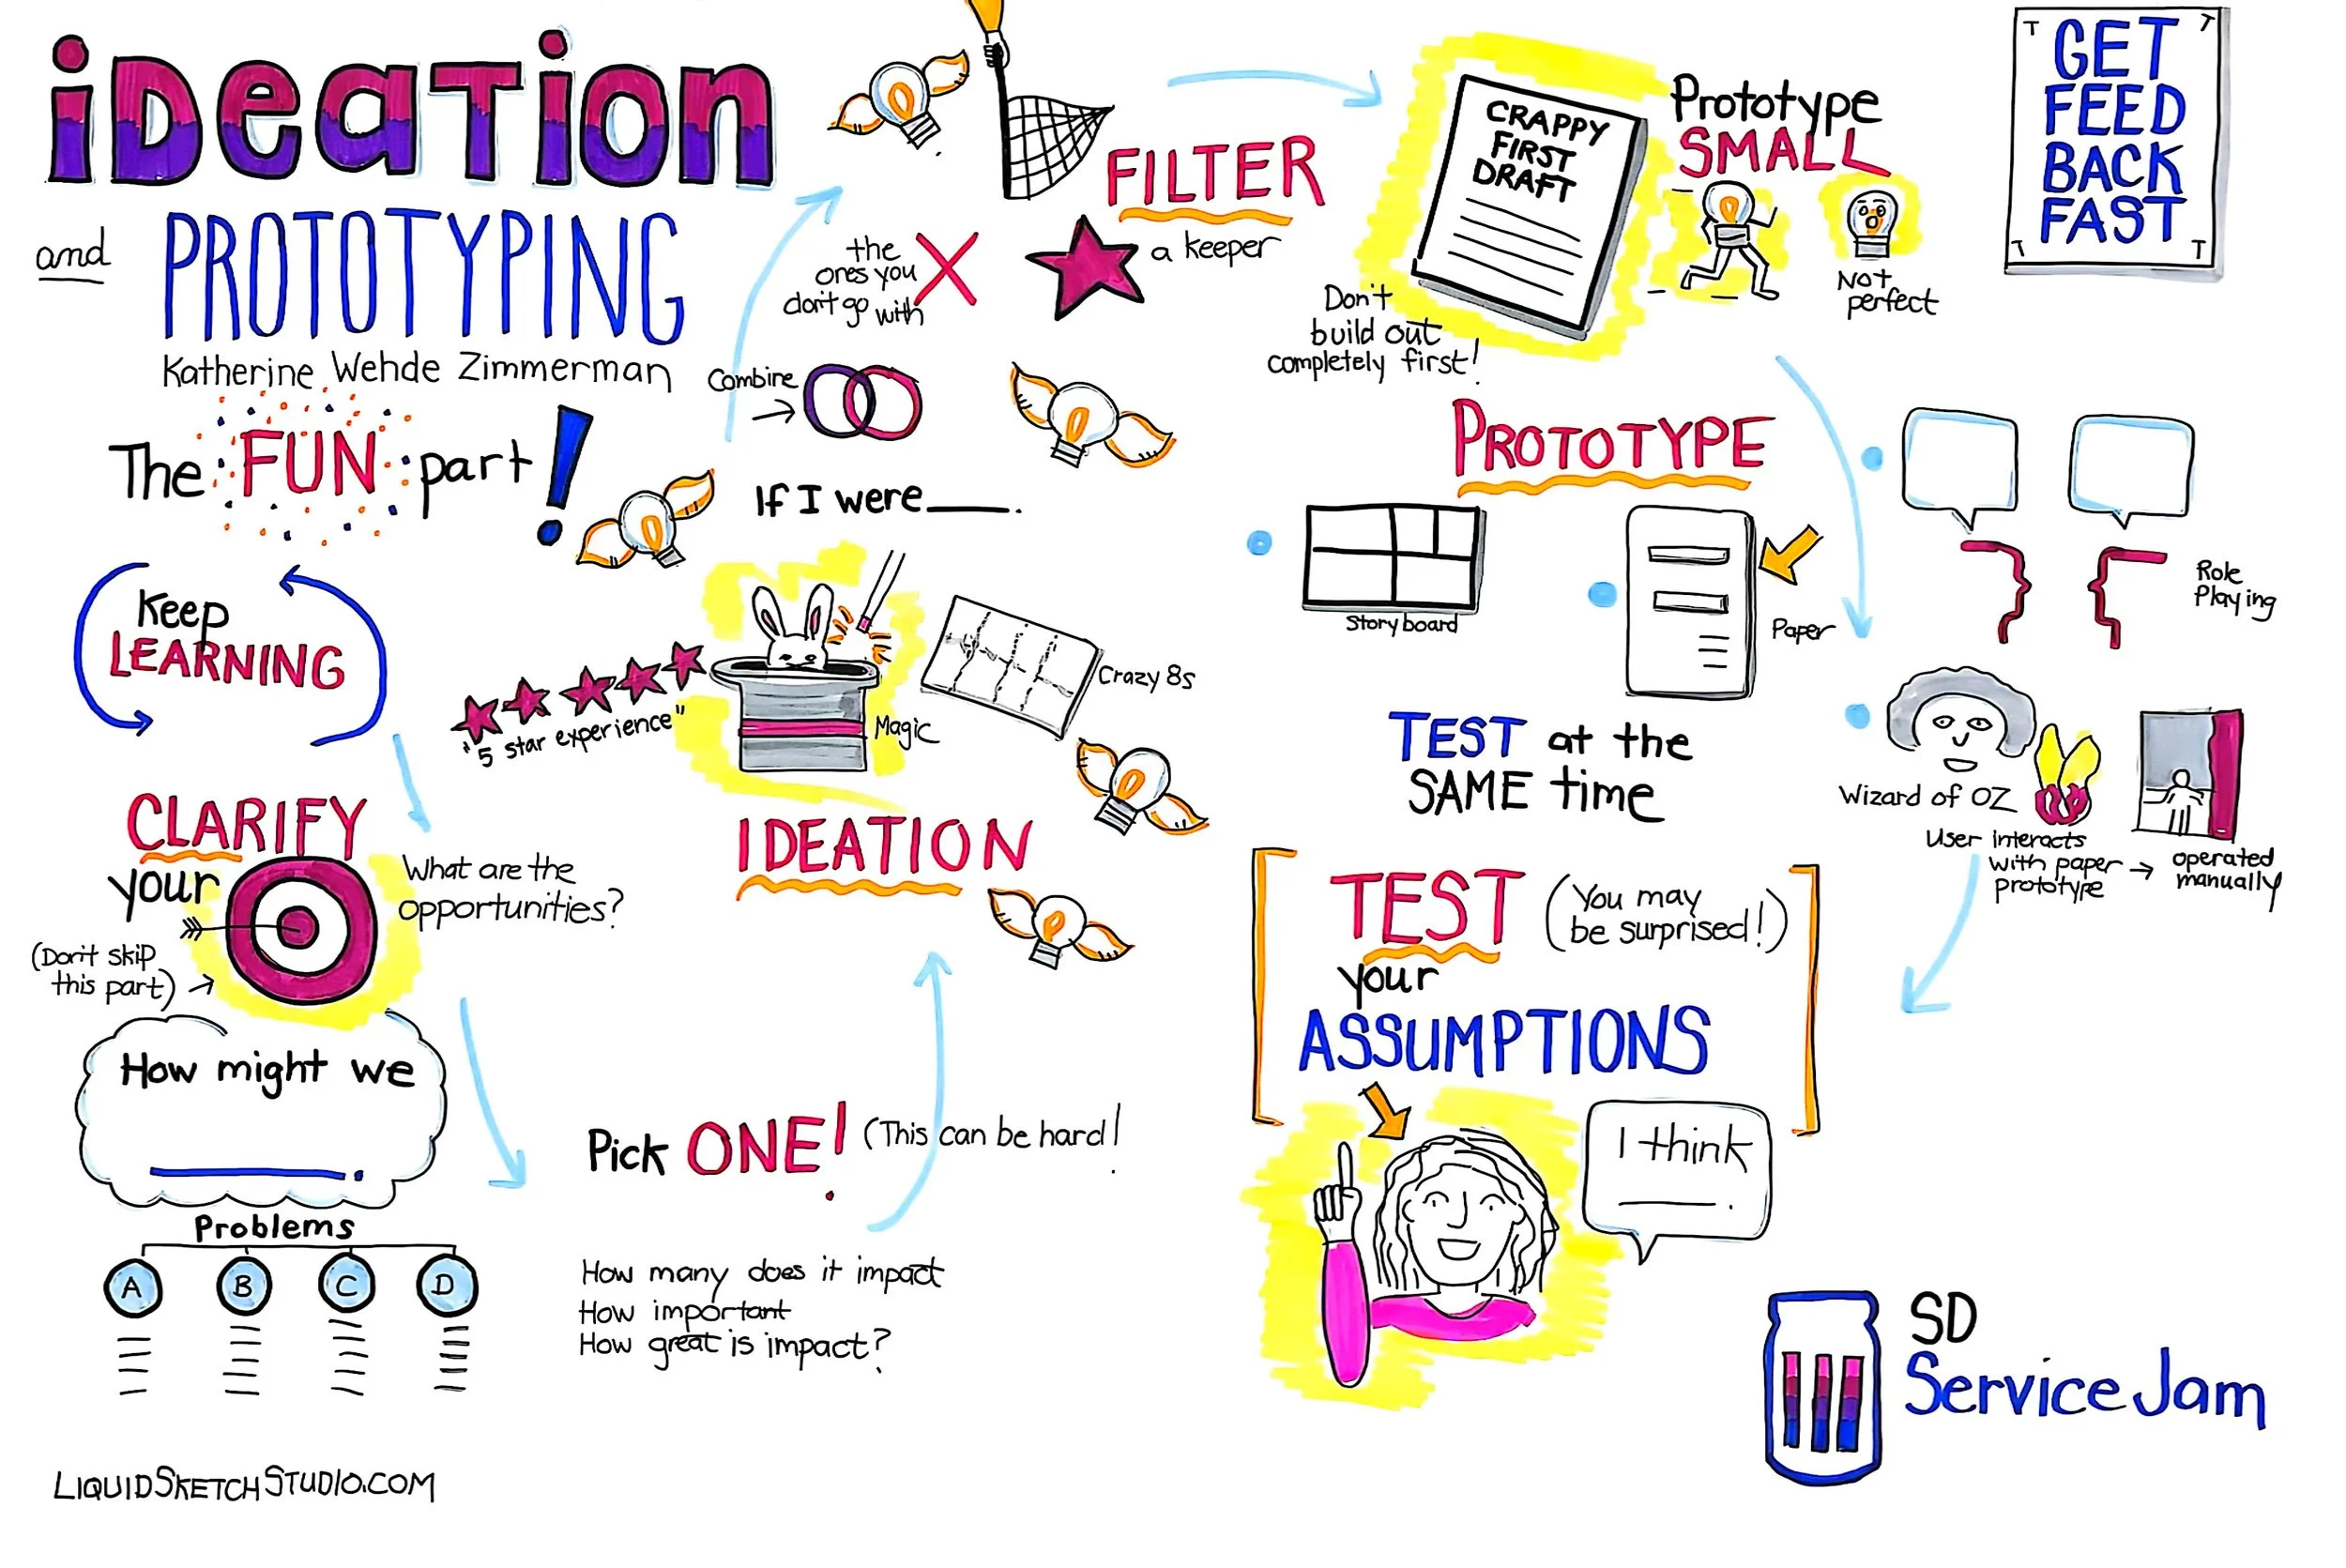 iDeaTion
and PROTOTYPING
Katherine Wehde Zimmerman
The FUN part!
Keep
LEARNING
CLARIFY
your
(Don't skip
this part) →
What are the
opportunities?
How might we
______.
Problems
A B C D
Pick ONE! (This can be hard!
How many does it impact
How important
How great is impact?
IDEATION
"5 star experience"
Magic
Crazy 8s
If I were ____.
Combine
→
FILTER
the
ones you
don't go with
X
a keeper
CRAPPY
FIRST
DRAFT
Don't
build out
completely first!
Prototype
SMALL
Not
perfect
GET
FEED
BACK
FAST
PROTOTYPE
Story board
Paper
Role
Playing
Wizard of OZ
User interacts
with paper →
prototype
operated
manually
TEST at the
SAME time
TEST (You may
be surprised!)
your
ASSUMPTIONS
I think
____.
SD
Service Jam
LIQUIDSKETCHSTUDIO.COM